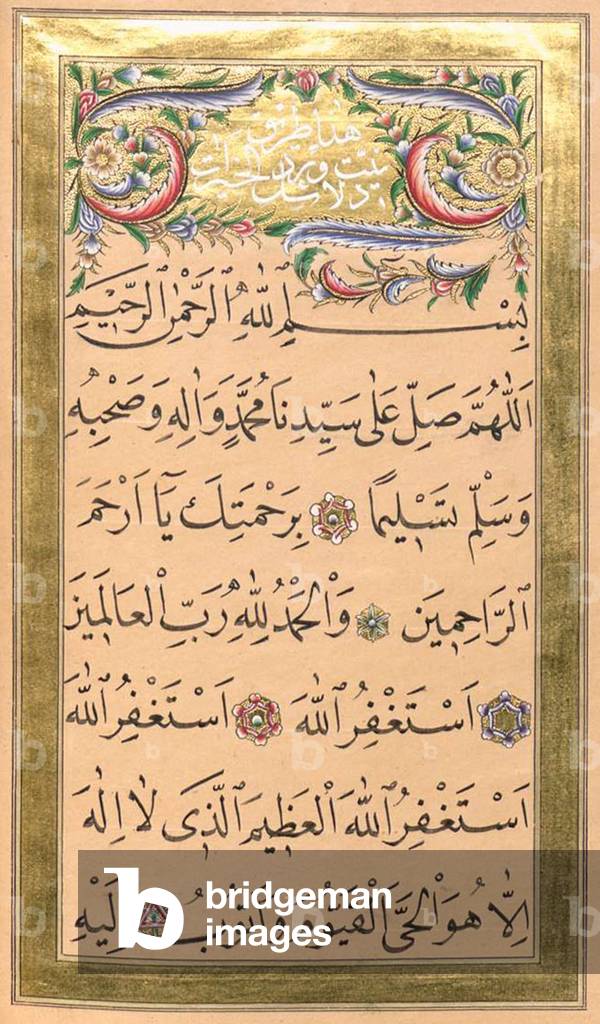 هذا طريق
نيت ورد
دلائل الخيرات
بِسْمِ اللّٰهِ الرَّحْمٰنِ الرَّحٖيمِ
اَللّٰهُمَّ صَلِّ عَلٰى سَيِّدِنَا مُحَمَّدٍ وَاٰلِهٖ وَصَحْبِهٖ
وَسَلِّمْ تَسْلٖيمًا بِرَحْمَتِكَ يَٓا اَرْحَمَ
الرَّاحِمٖينَ وَالْحَمْدُ لِلّٰهِ رَبِّ الْعَالَمٖينَ
اَسْتَغْفِرُ اللّٰهَ اَسْتَغْفِرُ اللّٰهَ
اَسْتَغْفِرُ اللّٰهَ الْعَظٖيمَ الَّذٖى لَا اِلٰهَ
اِلَّا هُوَ الْحَىَّ الْقَيُّومَ وَاَتُوبُ اِلَيْهِ
b bridgeman
images